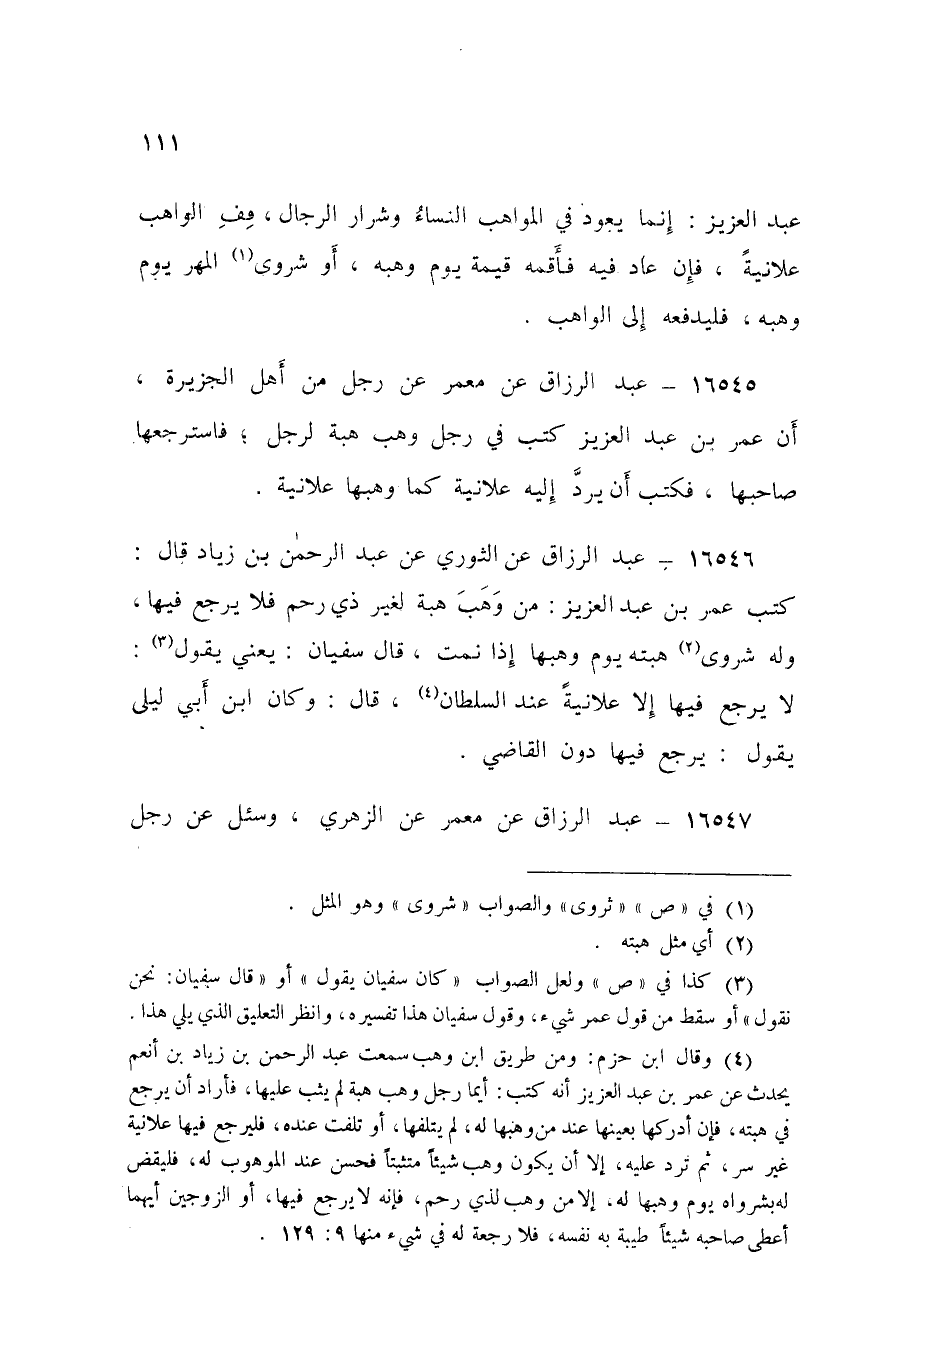 ١١١
عبد العزيز : إنما يعود في المواهب النساءُ وشرار الرجال ، قِفِ الواهب
علانيةً ، فإن عاد فيه فأَقمه قيمة يوم وهبه ، أَو شروى(١) المهر يوم
وهبه ، فليدفعه إلى الواهب .
١٦٥٤٥ – عبد الرزاق عن معمر عن رجل من أَهل الجزيرة ،
أَن عمر بن عبد العزيز كتب في رجل وهب هبة لرجل ؛ فاسترجعها
صاحبها ، فكتب أَن يردَّ إليه علانية كما وهبها علانية .
١٦٥٤٦ – عبد الرزاق عن الثوري عن عبد الرحمٰن بن زياد قال :
كتب عمر بن عبد العزيز : من وَهَبَ هبة لغير ذي رحم فلا يرجع فيها ،
وله شروى(٢) هبته يوم وهبها إذا نمت ، قال سفيان : يعني يقول(٣) :
لا يرجع فيها إلا علانيةً عند السلطان(٤) ، قال : وكان ابن أَبي ليلى
يقول : يرجع فيها دون القاضي .
١٦٥٤٧ – عبد الرزاق عن معمر عن الزهري ، وسئل عن رجل
(١) في « ص » « ثروى » والصواب « شروى » وهو المثل .
(٢) أي مثل هبته .
(٣) كذا في « ص » ولعل الصواب « كان سفيان يقول » أو « قال سفيان : نحن
نقول » أو سقط من قول عمر شيء، وقول سفيان هذا تفسيره، وانظر التعليق الذي يلي هذا .
(٤) وقال ابن حزم: ومن طريق ابن وهب سمعت عبد الرحمن بن زياد بن أنعم
يحدث عن عمر بن عبد العزيز أنه كتب : أيما رجل وهب هبة لم يثب عليها، فأراد أن يرجع
في هبته، فإن أدركها بعينها عند من وهبها له، لم يتلفها، أو تلفت عنده، فليرجع فيها علانية
غير سر، ثم ترد عليه، إلا أن يكون وهب شيئاً متثبتاً فحسن عند الموهوب له، فليقض
له بشرواه يوم وهبها له، إلا من وهب لذي رحم، فإنه لا يرجع فيها، أو الزوجين أيهما
أعطى صاحبه شيئاً طيبة به نفسه، فلا رجعة له في شيء منها ٩ : ١٢٩ .